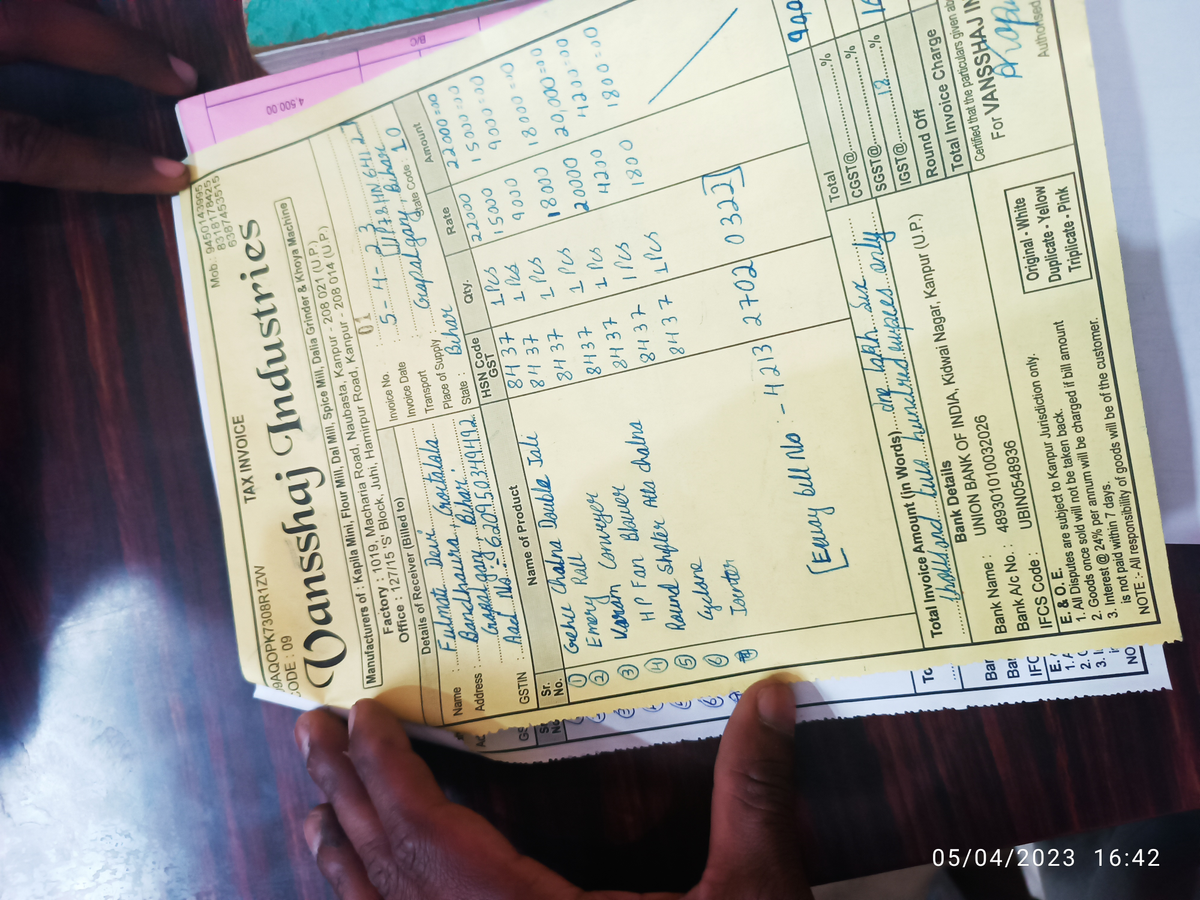 TAX INVOICE
9AQOPK7308R1ZW
CODE : 09
Mob.: 9450143995
8318178425
6387453515
Vansshaj Industries
Manufacturers of : Kaplla Mini, Flour Mill, Dal Mill, Spice Mill, Dalia Grinder & Khoya Machine
Factory : 1019, Macharia Road, Naubasta, Kanpur - 208 021 (U.P.)
Office : 127/15 'S' Block, Juhi, Hamirpur Road, Kanpur - 208 014 (U.P.)
Details of Receiver (Billed to)
Name : Fulmati Devi
Address : Bankdhaura
Gopalganj Bihar.
GSTIN : 620950349492
Invoice No. 01
Invoice Date : 5-4-23
Transport :
Place of Supply : Gopalganj, Bihar
State : Bihar State Code : 10
Sr. No. Name of Product HSN Code GST Qty. Rate Amount
① Grehu Chalna Double Jali 8437 1 Pcs 22000 22000=00
② Emery Roll 8437 1 Pcs 15000 15000=00
③ Conveyer 8437 1 Pcs 9000 9000=00
④ HP Fan Blower 8437 1 Pcs 18000 18000=00
⑤ Round Shifter Atta chalna 8437 1 Pcs 20000 20,000=00
⑥ Cyclone 8437 1 Pcs 4200 4200=00
8437 1 Pcs 1800 1800=00
[Eway bill No - 4213 2702 0322]
Total
CGST@ %
SGST@ %
IGST@ 12 %
Round Off
Total Invoice Charge
Total Invoice Amount (in Words) one lakh six
thousand two hundred rupees only
Bank Details
Bank Name : UNION BANK OF INDIA, Kidwai Nagar, Kanpur (U.P.)
Bank A/c No. : 489301010032026
IFCS Code : UBIN0548936
E. & O. E.
1. All Disputes are subject to Kanpur Jurisdiction only.
2. Goods once sold will not be taken back.
3. Interest @ 24% per annum will be charged if bill amount
is not paid within 7 days.
NOTE :- All responsibility of goods will be of the customer.
Original - White
Duplicate - Yellow
Triplicate - Pink
Certified that the particulars given ab
For VANSSHAJ IN
Authorised
4,500.00
05/04/2023 16:42